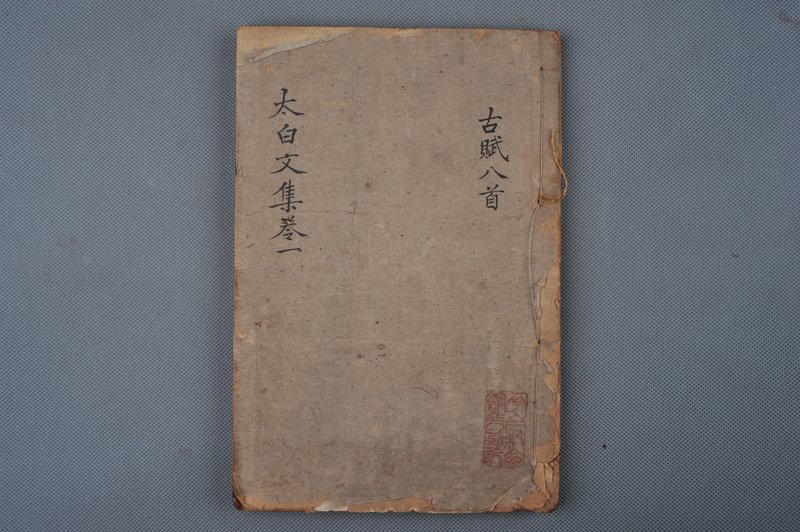 古賦八首
太白文集卷一